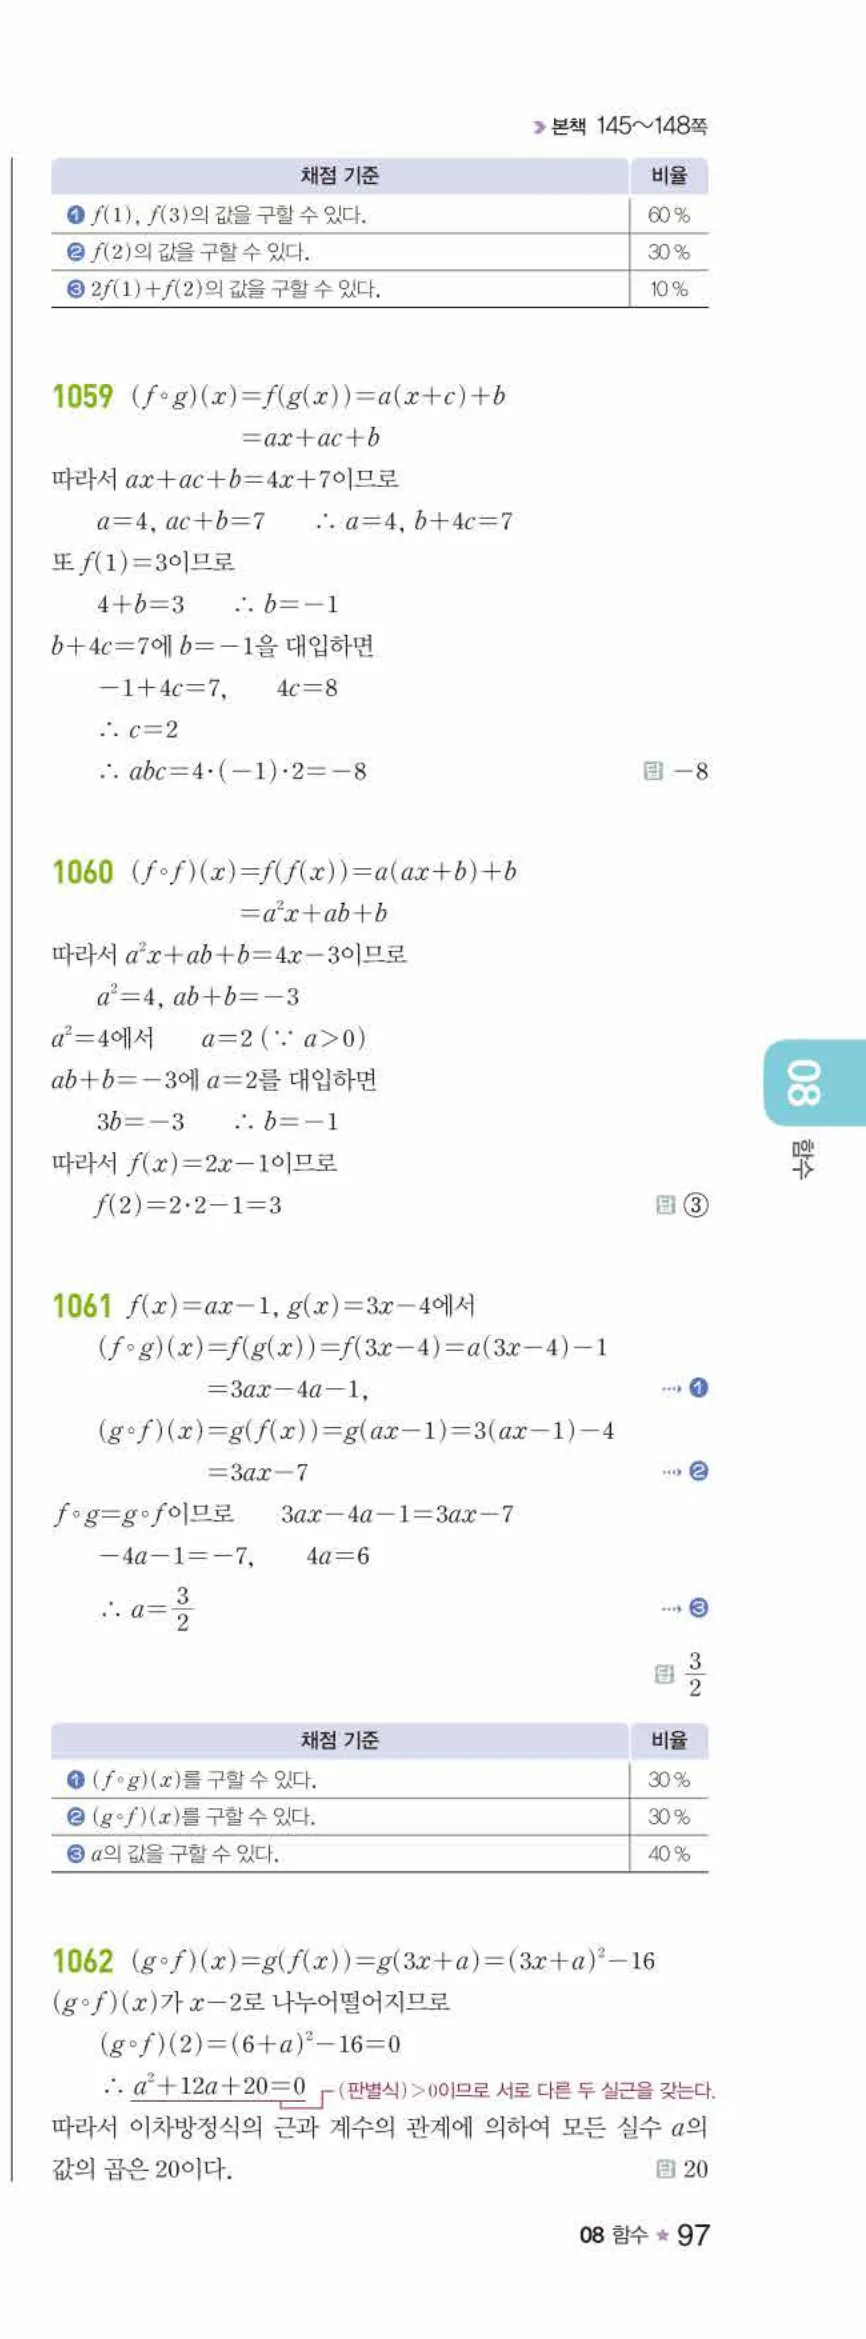 본책 145~148쪽
채점 기준 비율
❶ f(1), f(3)의 값을 구할 수 있다. 60 %
❷ f(2)의 값을 구할 수 있다. 30 %
❸ 2f(1)+f(2)의 값을 구할 수 있다. 10 %
1059 (f∘g)(x)=f(g(x))=a(x+c)+b
=ax+ac+b
따라서 ax+ac+b=4x+7이므로
a=4, ac+b=7 ∴ a=4, b+4c=7
또 f(1)=3이므로
4+b=3 ∴ b=-1
b+4c=7에 b=-1을 대입하면
-1+4c=7, 4c=8
∴ c=2
∴ abc=4·(-1)·2=-8 답 -8
1060 (f∘f)(x)=f(f(x))=a(ax+b)+b
=a²x+ab+b
따라서 a²x+ab+b=4x-3이므로
a²=4, ab+b=-3
a²=4에서 a=2 (∵ a>0)
ab+b=-3에 a=2를 대입하면
3b=-3 ∴ b=-1
따라서 f(x)=2x-1이므로
f(2)=2·2-1=3 답 ③
08 함수
1061 f(x)=ax-1, g(x)=3x-4에서
(f∘g)(x)=f(g(x))=f(3x-4)=a(3x-4)-1
=3ax-4a-1, ⋯→ ❶
(g∘f)(x)=g(f(x))=g(ax-1)=3(ax-1)-4
=3ax-7 ⋯→ ❷
f∘g=g∘f이므로 3ax-4a-1=3ax-7
-4a-1=-7, 4a=6
∴ a=3/2 ⋯→ ❸
답 3/2
채점 기준 비율
❶ (f∘g)(x)를 구할 수 있다. 30 %
❷ (g∘f)(x)를 구할 수 있다. 30 %
❸ a의 값을 구할 수 있다. 40 %
1062 (g∘f)(x)=g(f(x))=g(3x+a)=(3x+a)²-16
(g∘f)(x)가 x-2로 나누어떨어지므로
(g∘f)(2)=(6+a)²-16=0
∴ a²+12a+20=0 (판별식)>0이므로 서로 다른 두 실근을 갖는다.
따라서 이차방정식의 근과 계수의 관계에 의하여 모든 실수 a의
값의 곱은 20이다. 답 20
08 함수 97